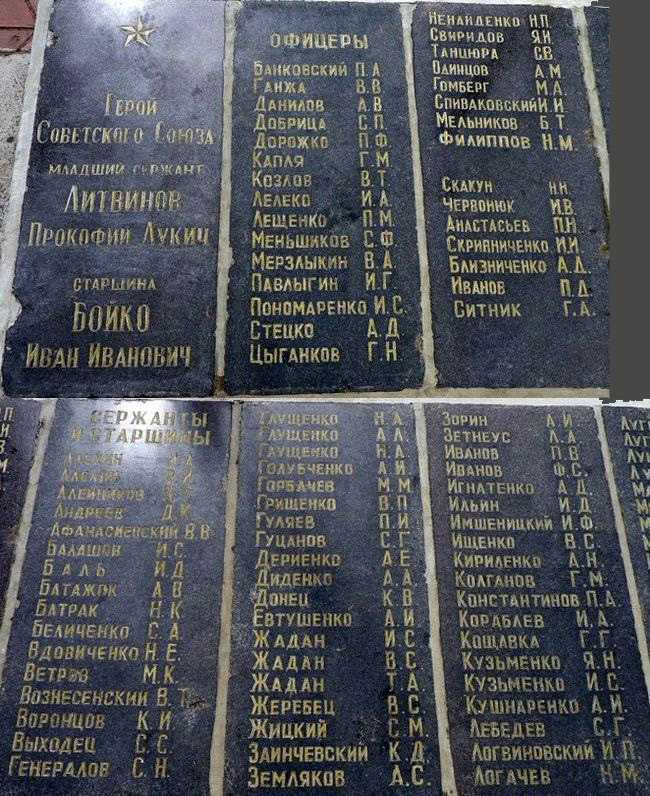 Герой
Советского Союза
младший сержант
Литвинов
Прокофий Лукич
старшина
Бойко
Иван Иванович
Офицеры
Банковский П.А.
Ганжа В.В.
Данилов А.В.
Добрица С.П.
Дорожко П.Ф.
Капля Г.М.
Козлов В.Т.
Лелеко И.А.
Лещенко П.М.
Меньшиков С.Ф.
Мерзлыкин В.А.
Павлыгин И.Г.
Пономаренко И.С.
Стецко А.Д.
Цыганков Г.Н.
Ненайденко Н.П.
Свиридов Я.И.
Танцюра С.В.
Одинцов А.М.
Гомберг М.А.
Спиваковский И.И.
Мельников Б.Т.
Филиппов Н.М.
Скакун Н.Н.
Червонюк И.В.
Анастасьев П.Н.
Скрипниченко И.И.
Близниченко А.Д.
Иванов П.Д.
Ситник Г.А.
Сержанты
и старшины
Алехин И.А.
Алехин
Алейников
Андреев Д.К.
Афанасиевский В.В.
Балашов И.С.
Баль И.Д.
Батажок А.В.
Батрак Н.К.
Беличенко С.А.
Вдовиченко Н.Е.
Ветров М.К.
Вознесенский В.Т.
Воронцов К.И.
Выходец С.С.
Генералов С.Н.
Глущенко Н.А.
Глущенко А.Л.
Глущенко Н.А.
Голубченко А.И.
Горбачев М.М.
Грищенко В.П.
Гуляев П.И.
Гуцанов С.Г.
Дериенко А.Е.
Диденко А.А.
Донец К.В.
Евтушенко А.И.
Жадан И.С.
Жадан В.С.
Жадан Т.А.
Жеребец В.С.
Жицкий С.М.
Заинчевский К.Д.
Земляков А.С.
Зорин А.И.
Зетнеус Л.А.
Иванов П.В.
Иванов Ф.С.
Игнатенко А.Д.
Ильин И.Д.
Имшеницкий И.Ф.
Ищенко В.С.
Кириленко А.Н.
Колганов Г.М.
Константинов П.А.
Кораблев И.А.
Кощавка Г.Г.
Кузьменко Я.Н.
Кузьменко И.С.
Кушнаренко А.И.
Лебедев С.Г.
Логвиновский И.П.
Логачев Н.М.